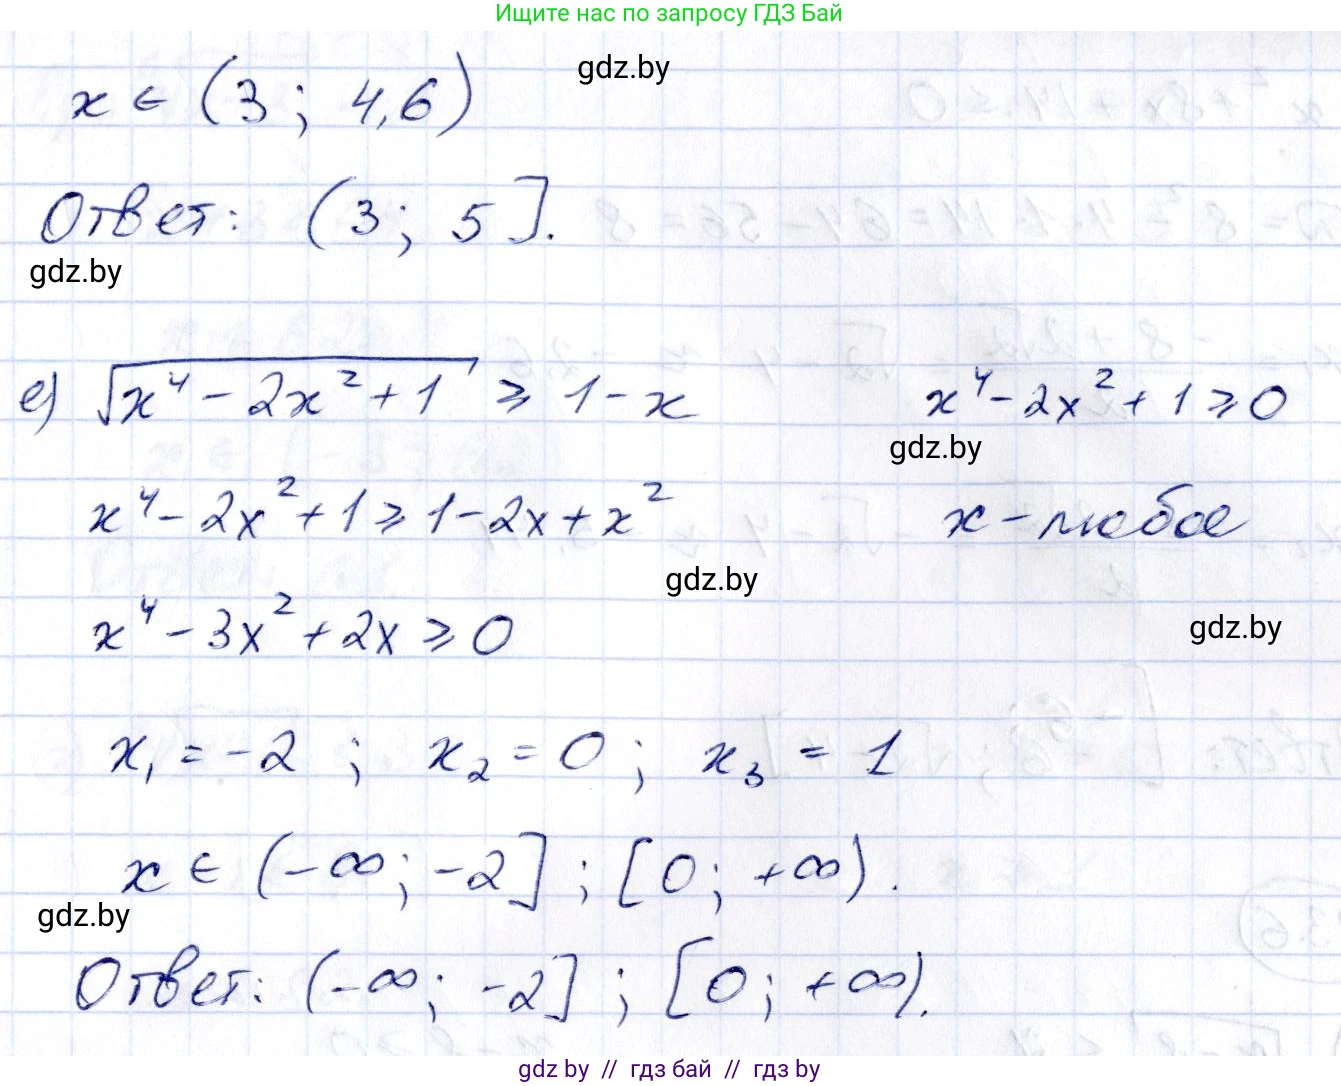 Ищите нас по запросу ГДЗ Бай
x ∈ (3; 4,6)
gdz.by
Ответ: (3; 5].
gdz.by
е) √(x⁴ - 2x² + 1) ≥ 1 - x
x⁴ - 2x² + 1 ≥ 0
gdz.by
x⁴ - 2x² + 1 ≥ 1 - 2x + x²
x - любое
gdz.by
x⁴ - 3x² + 2x ≥ 0
gdz.by
x₁ = -2 ; x₂ = 0 ; x₃ = 1
x ∈ (-∞; -2] ; [0; +∞).
gdz.by
Ответ: (-∞; -2] ; [0; +∞).
gdz by // гдз бай // гдз by